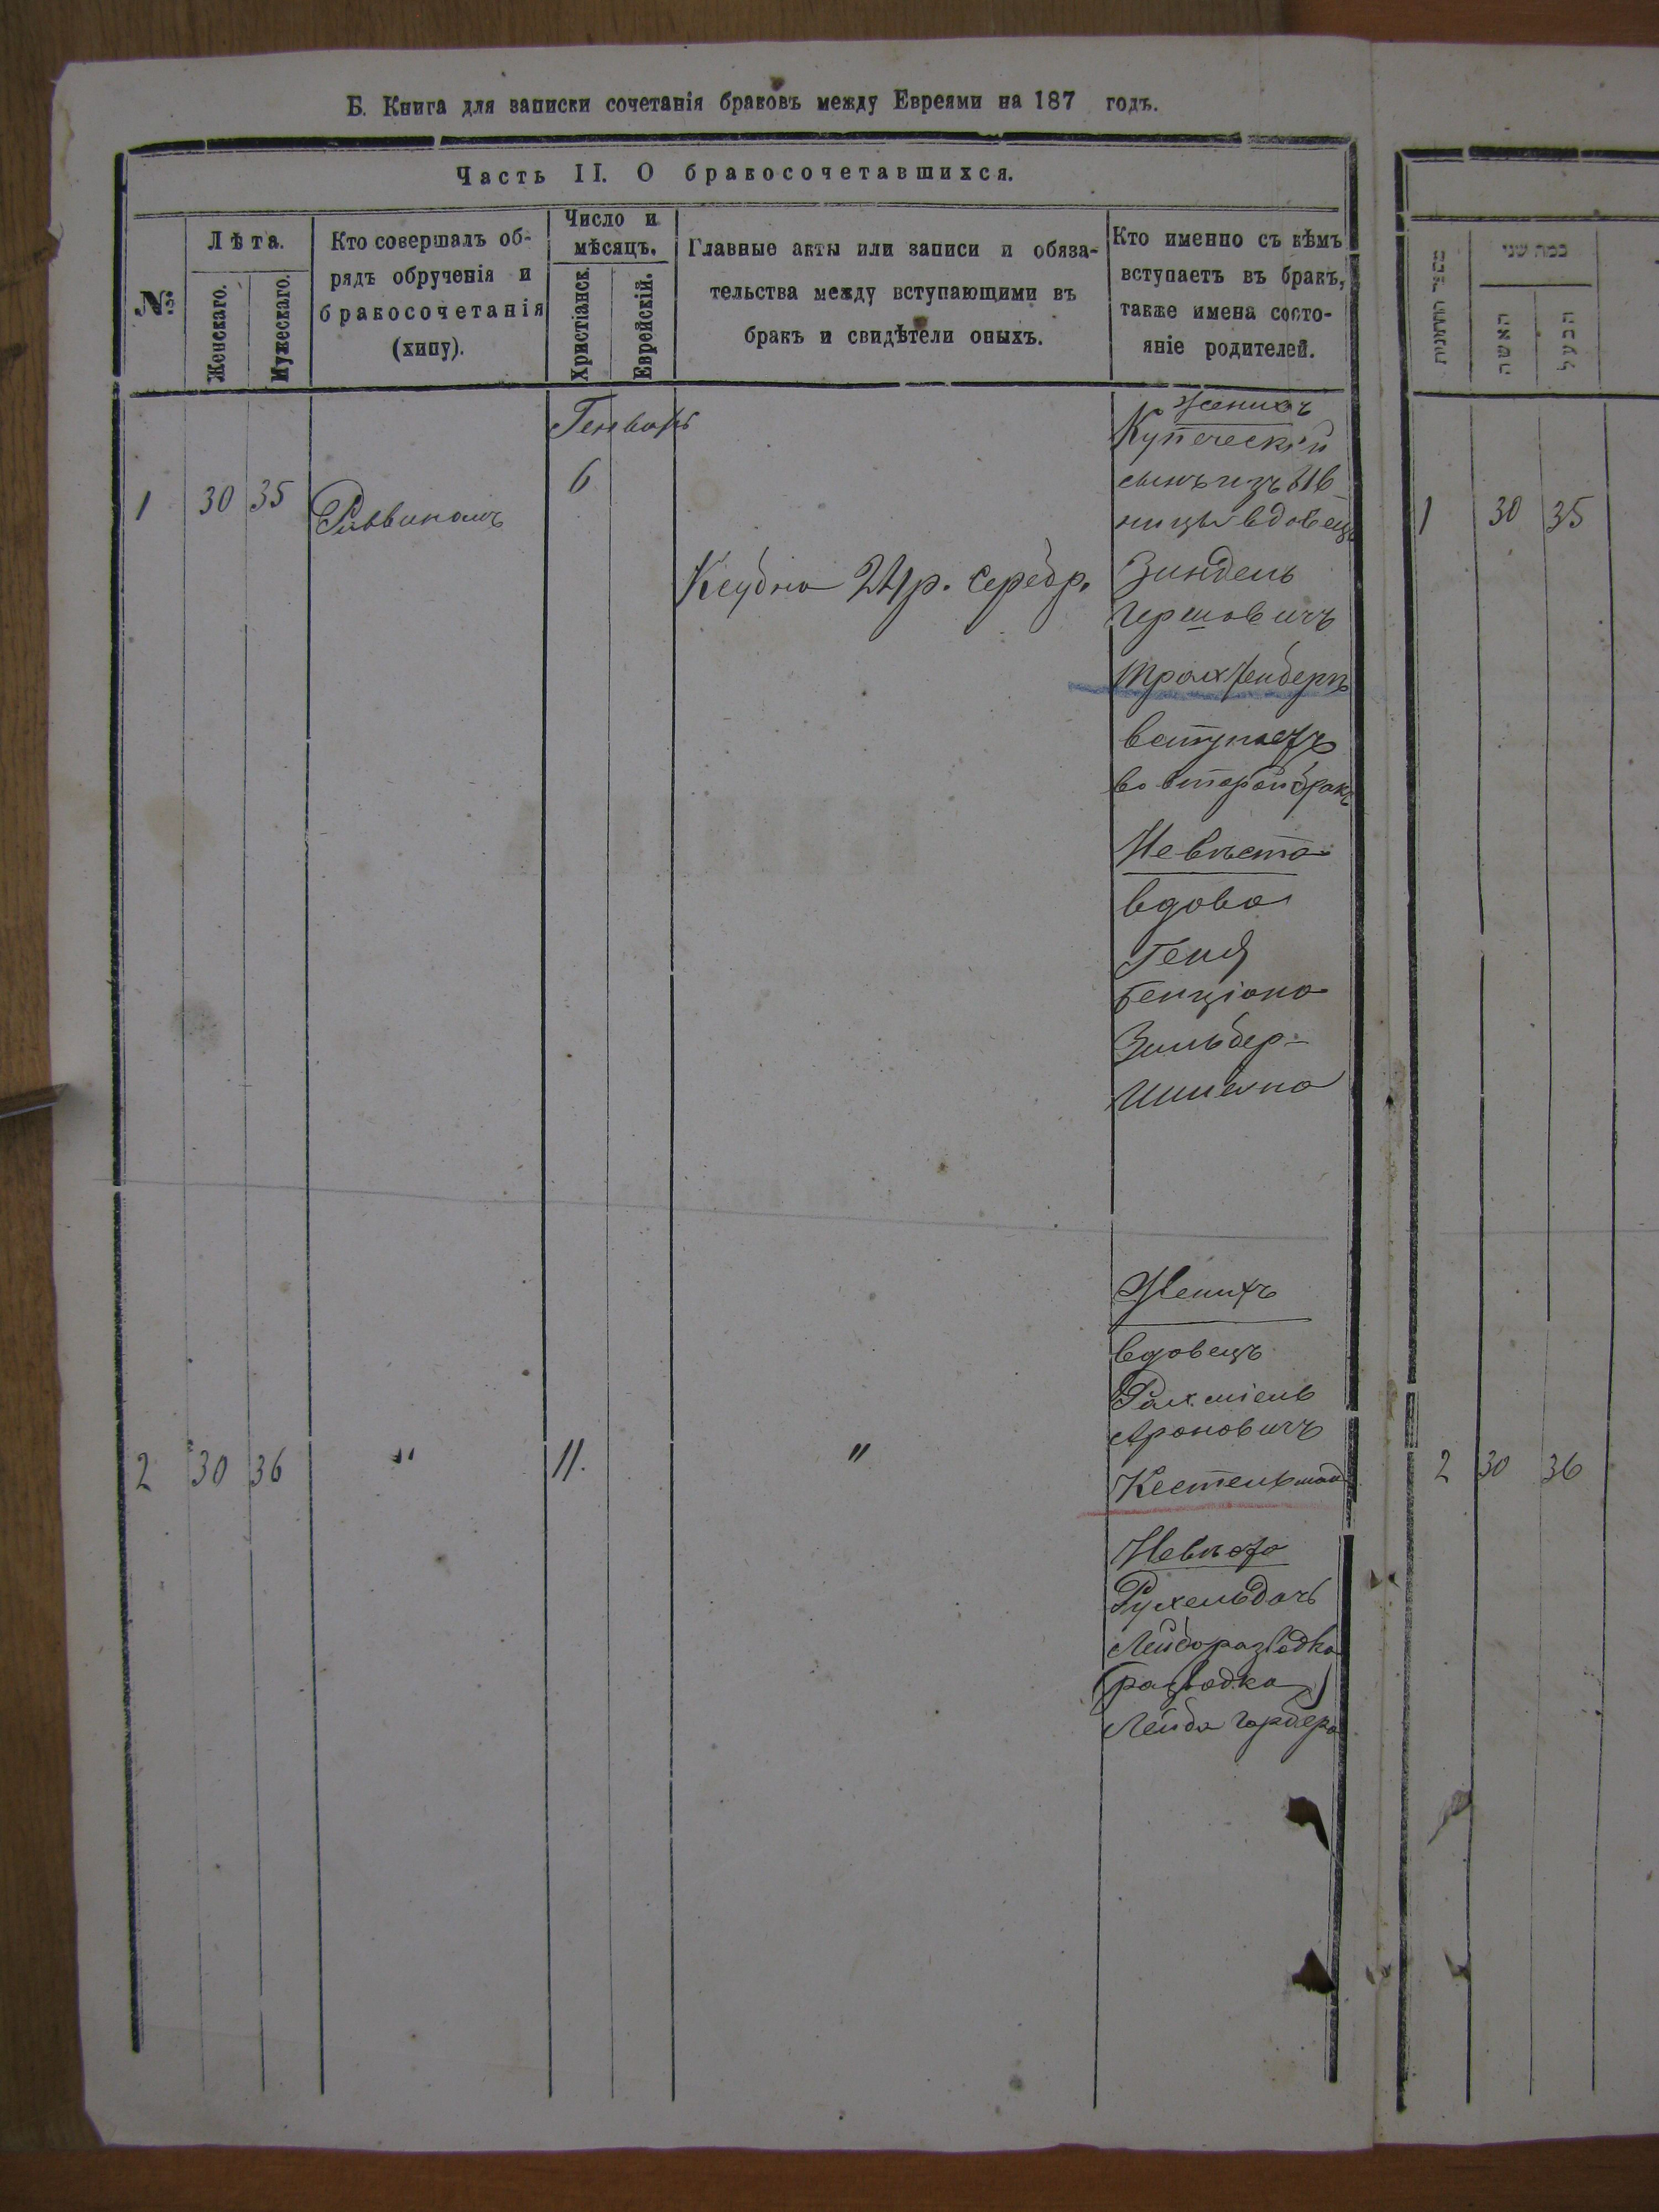 Б. Книга для записки сочетанія браковъ между Евреями на 187 годъ.
Часть II. О бракосочетавшихся.
№
Лѣта.
Женскаго.
Мужескаго.
Кто совершалъ об-
рядъ обрученія и
бракосочетанія
(хипу).
Число и
мѣсяцъ.
Христіанск.
Еврейскій.
Главные акты или записи и обяза-
тельства между вступающими въ
бракъ и свидѣтели оныхъ.
Кто именно съ кѣмъ
вступаетъ въ бракъ,
также имена состо-
яніе родителей.
Генварь
1 30 35
Раввиномъ
6
Ксубна 24 р. серебр.
Женихъ
Купеческій
сынъ изъ Ив-
ницы вдовецъ
Зиндель
Гершовичъ
Трахтенбергъ
вступаетъ
во второй бракъ
Невѣста
вдова
Геня
Бенціона
Зильбер-
2 30 36 " 11. "
Женихъ
вдовецъ
Рахміель
Ароновичъ
Невѣста
Рухель дочь
Лейба разводка
(разводка)
Лейба Гарбера
מספר החתונות
כמה שני
האשה
הבעל
1 30 35
2 30 36